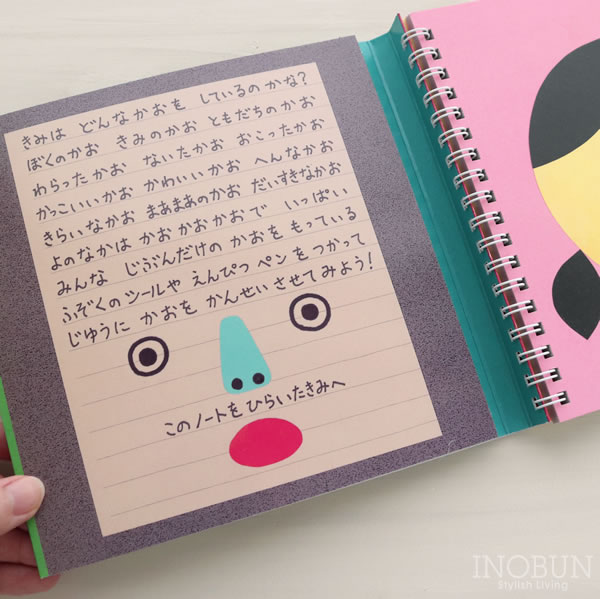 きみは どんなかおを しているのかな?
ぼくのかお きみのかお ともだちのかお
わらったかお ないたかお おこったかお
かっこいいかお かわいいかお へんなかお
きらいなかお まあまあのかお だいすきなかお
よのなかは かおかおかおで いっぱい
みんな じぶんだけの かおを もっている
ふぞくのツールや えんぴつ ペンを つかって
じゆうに かおを かんせいさせてみよう!
このノートをひらいたきみへ
INOBUN
Stylish Living